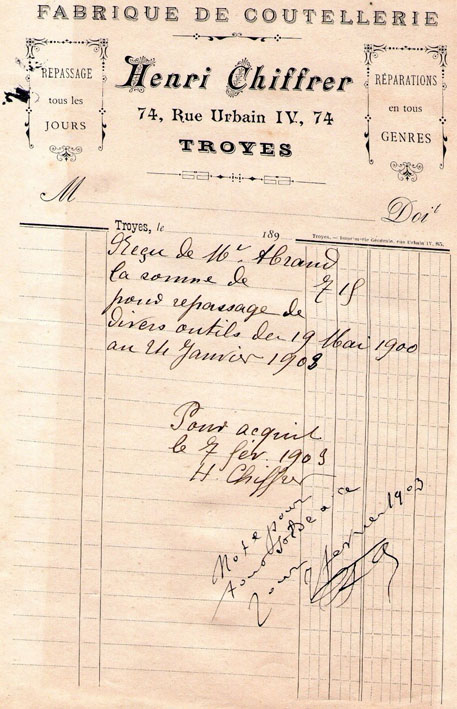 FABRIQUE DE COUTELLERIE
REPASSAGE
tous les
JOURS
Henri Chiffrer
74, Rue Urbain IV, 74
TROYES
RÉPARATIONS
en tous
GENRES
M
Doit
Troyes, le 189
Troyes. — Imprimerie Générale, rue Urbain IV, 85.
Reçu de Mr. Abrand
la somme de 7 15
pour repassage de
divers outils du 19 Mai 1900
au 24 Janvier 1903
Pour acquit
le 7 fév. 1903
H. Chiffrer
Note pour
tous solde à ce
jour 7 février 1903